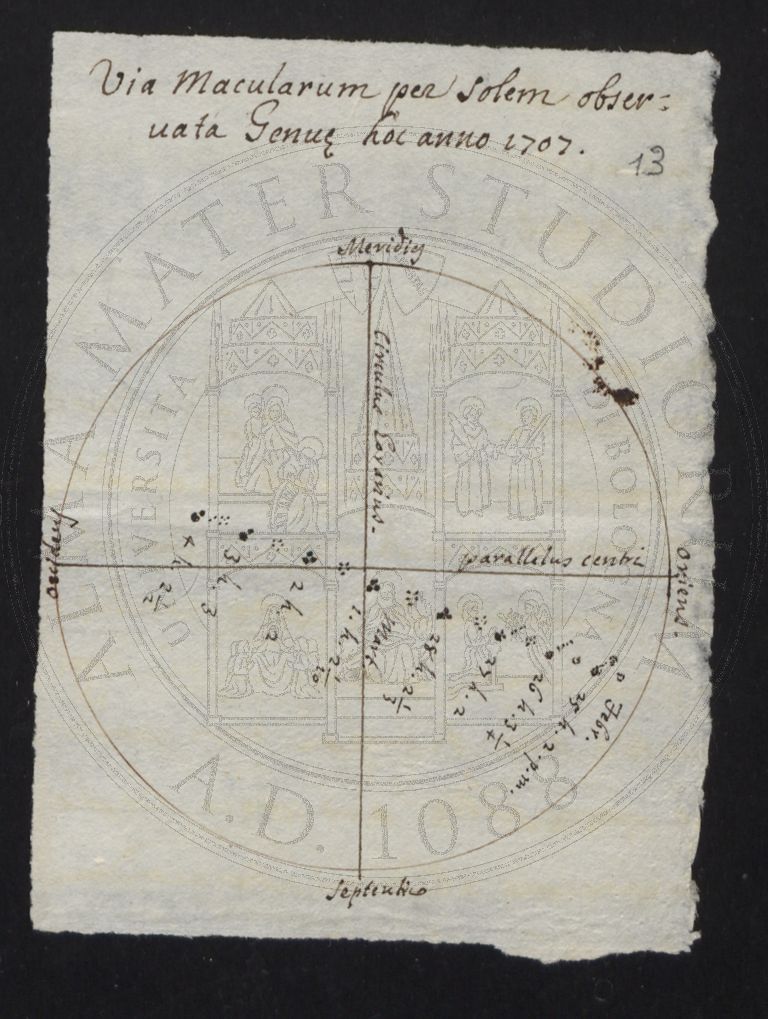 Via Macularum per Solem obser=
uata Genuę hoc anno 1707.
13
Meridies
Circulus horarius.
occidens
parallelus centri
oriens.
4 h. 2 1/2
3 h. 3
2 h. 2
1. h. 2
Mart.
28 h. 2 1/3
h. 2
26 h. 3 1/4
25 h. 2. p. m.
Febr.
Septentrio
ALMA MATER STUDIORUM
UNIVERSITA DI BOLOGNA
A.D. 1088